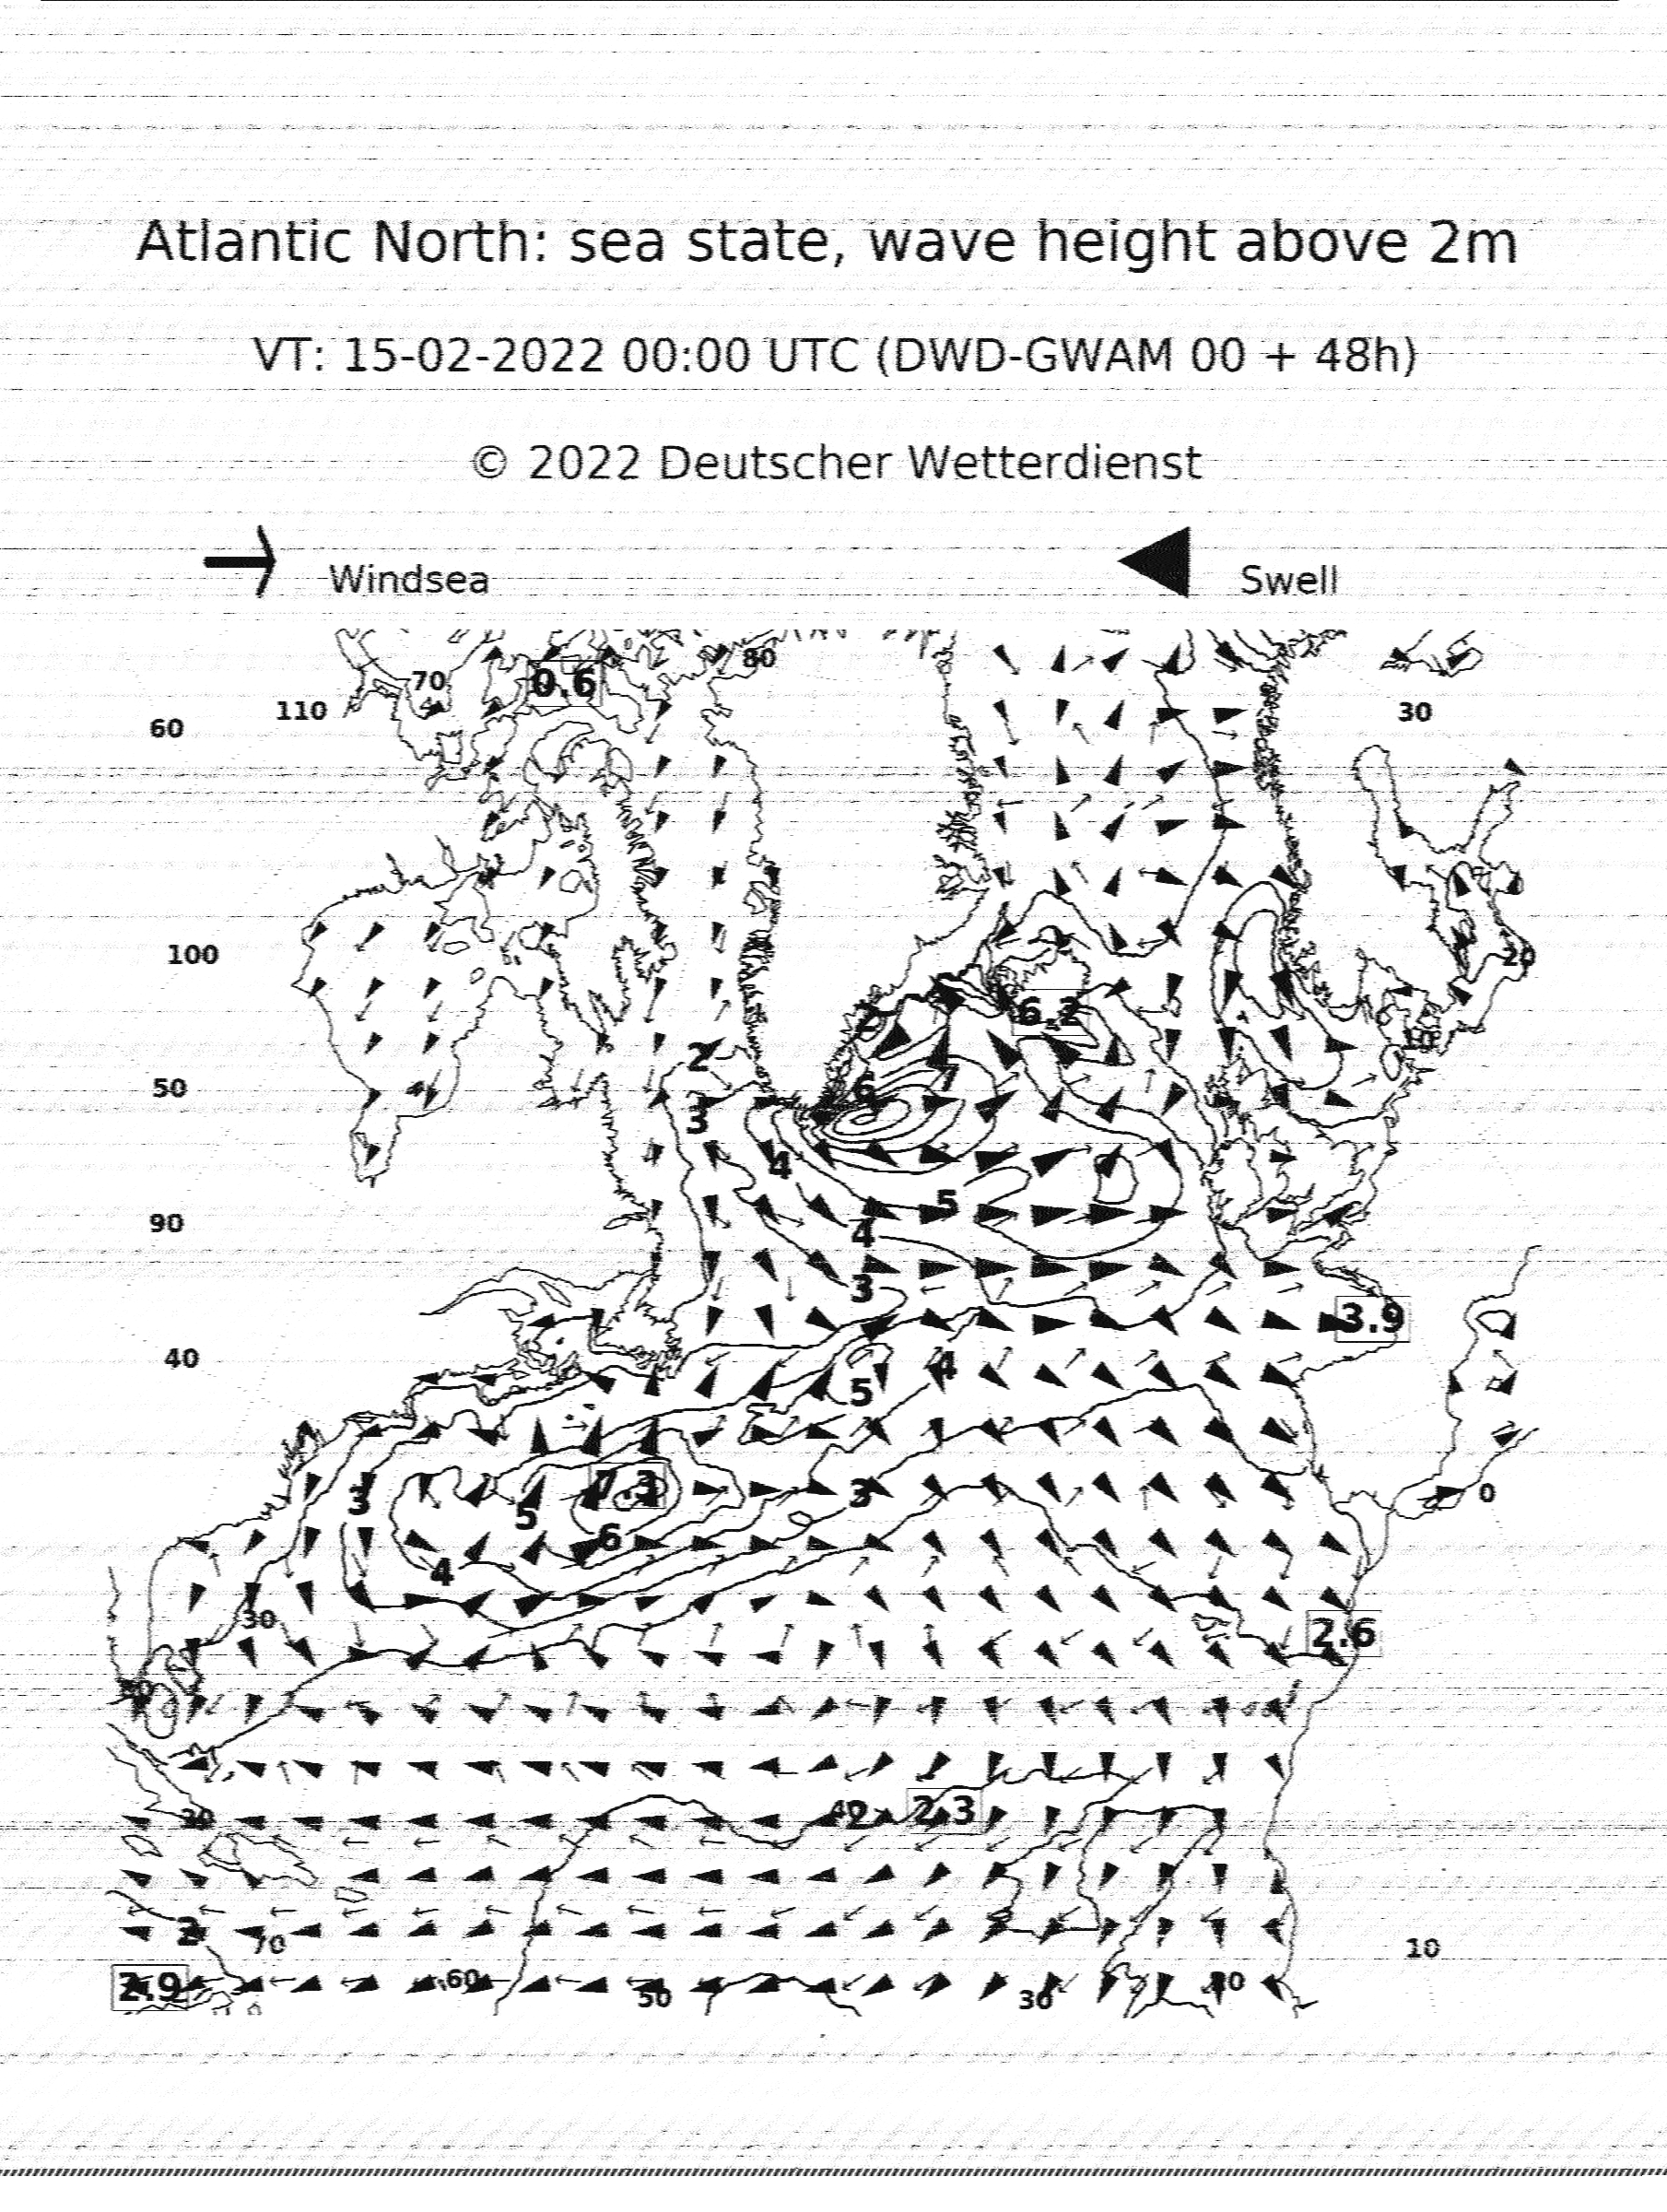 Atlantic North: sea state, wave height above 2m
VT: 15-02-2022 00:00 UTC (DWD-GWAM 00 + 48h)
© 2022 Deutscher Wetterdienst
Windsea
Swell
80
70
0.6
110
30
60
100
20
6.2
10
2
7
50
6
3
4
90
5
4
3
3.9
40
4
5
7.3
3
3
0
5
6
4
30
2.6
20
40
2
2.3
2
70
10
2.9
60
50
30
20